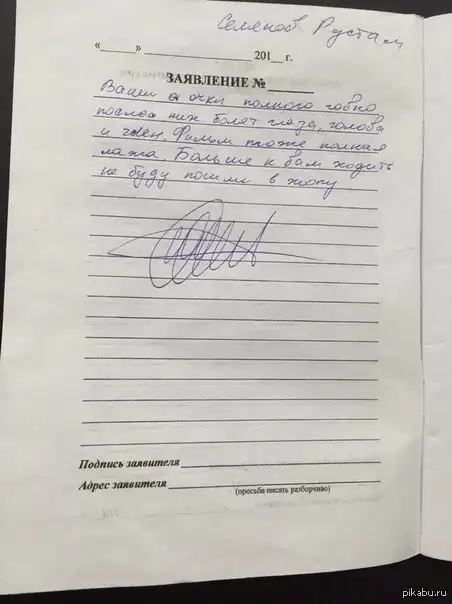 Семенов Рустам
«_____» ______________ 201__ г.
ЗАЯВЛЕНИЕ №______
Ваши очки полного говно
после них болят глаза, голова
и член. Фильм тоже полная
лажа. Больше к вам ходить
не буду пошли в жопу
Подпись заявителя
Адрес заявителя
(просьба писать разборчиво)
pikabu.ru